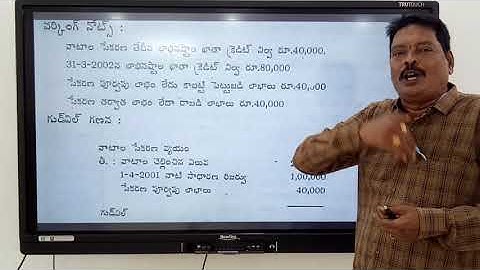 TRUTOUCH
వర్కింగ్ నోట్స్ :
వాటాల సేకరణ తేదీన లాభనష్టాల ఖాతా క్రెడిట్ నిల్వ రూ.40,000,
31-3-2002న లాభనష్టాల ఖాతా క్రెడిట్ నిల్వ రూ.80,000
సేకరణ పూర్వపు లాభం లేదు కాబట్టి పెట్టుబడి లాభాలు రూ.40,000
సేకరణ తర్వాత లాభం లేదా రాబడి లాభాలు రూ.40,000
గుడ్‌విల్ గణన :
వాటాల సేకరణ వ్యయం
తీ. : వాటాల చెల్లించిన విలువ
1-4-2001 నాటి సాధారణ రిజర్వు 1,00,000
సేకరణ పూర్వపు లాభాలు 40,000
గుడ్‌విల్